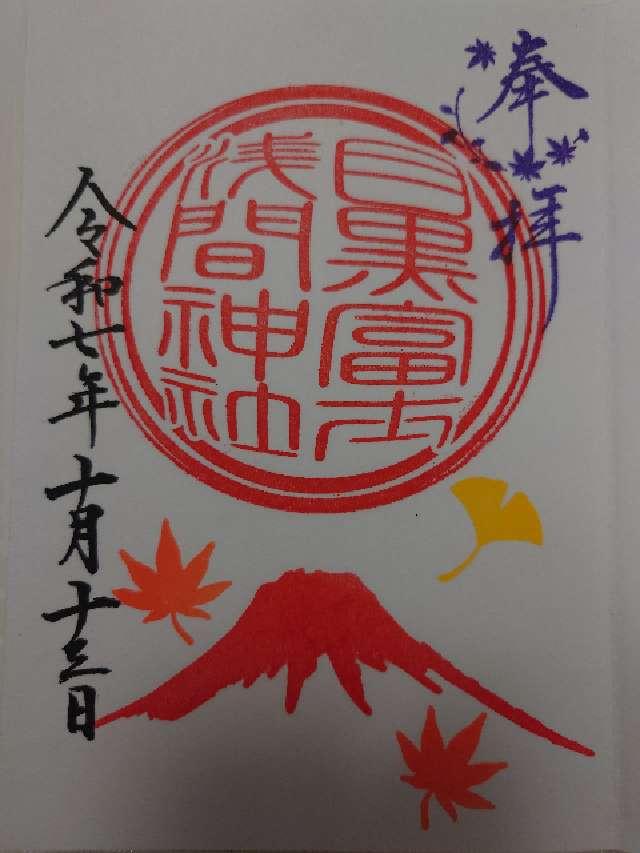 奉拝
目黒富士
浅間神社
令和七年十月十三日